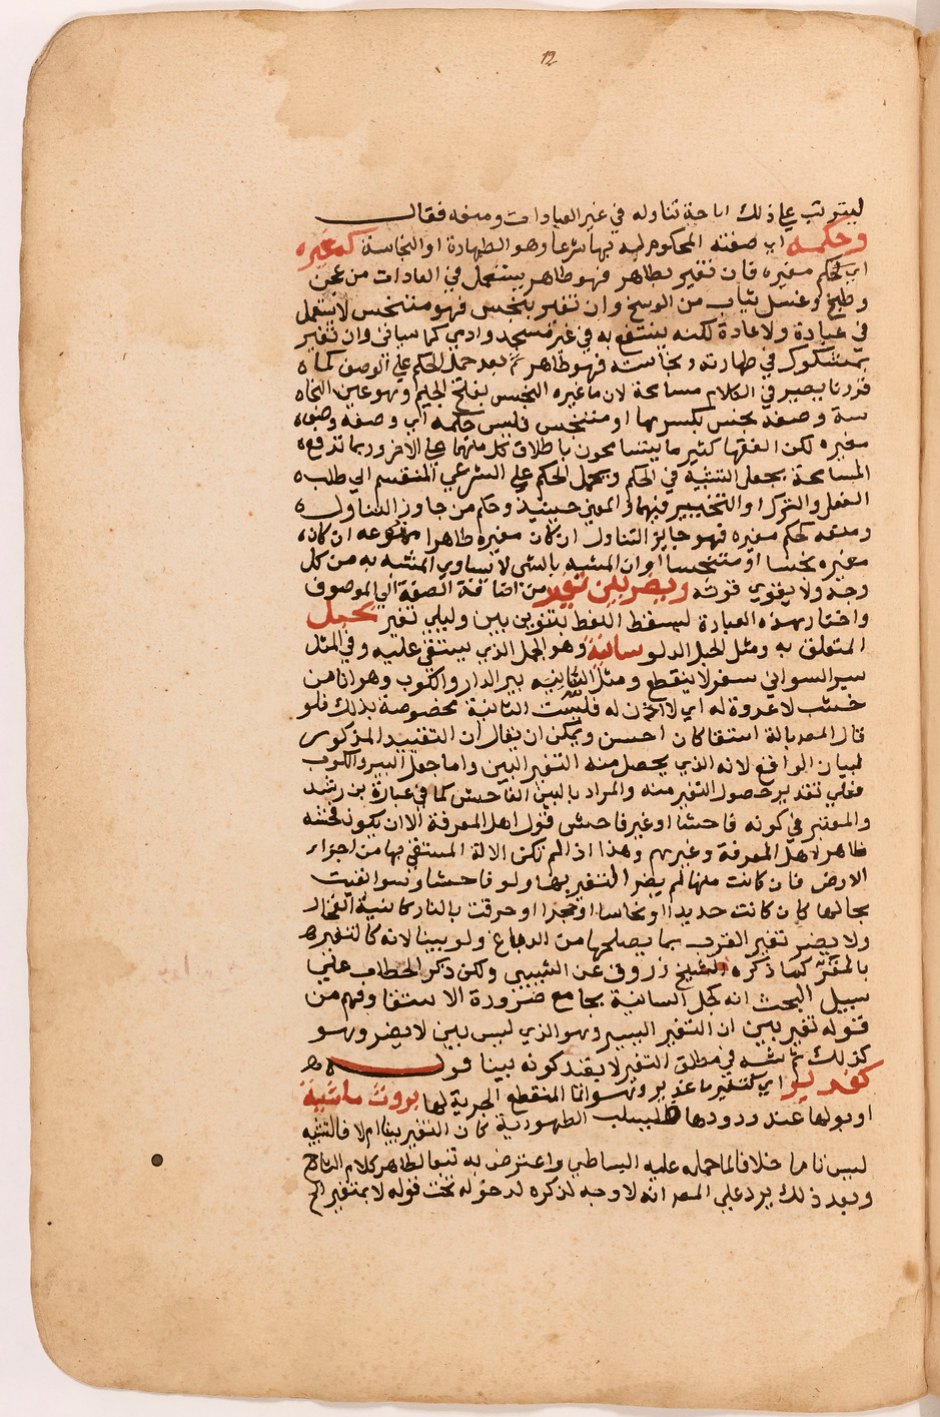 12
ليترتب على ذلك اباحة تناوله في غير العبادات ومنعه فقال
وحكمه اي صفته المحكوم له بها شرعا وهو الطهارة او النجاسة كمغيره
اي كحكم مغيره فان تغير بطاهر فهو طاهر يستعمل في العادات من عجن
وطبخ وغسل ثياب من الوسخ وان تغير بنجس فهو متنجس لا يستعمل
في عبادة ولا عادة لكنه ينتفع به في غير مسجد وادمي كما سياتي وان تغير
بمشكوك في طهارته ونجاسته فهو طاهر ثم بعد حمل الحكم على الوصف كما
قررنا يصير في الكلام مسامحة لان ما غيره النجس بفتح الجيم وهو عين النجا
سة وصفه نجس بكسرها او متنجس فليس حكمه اي وصفه وصف
مغيره لكن الفقها كثيرا ما يتسامحون باطلاق كل منهما على الاخر وربما تدفع
المسامحة بجعل التشبيه في الحكم ويحمل الحكم على الشرعي المنقسم الي طلب
الفعل والترك او التخيير فيهما والمعنى حينيذ وحكم من جاوز التناول
ومنعه كحكم مغيره فهو جايز التناول ان كان مغيره طاهرا ممنوعه ان كان
مغيره نجسا او متنجسا او ان المشبه بالشي لا يساوي المشبه به من كل
وجه ولا يقوي قوته ويضر بين تغير من اضافة الصفة الي الموصوف
واختار هذه العبارة ليسقط اللفظ بتنوين بين وليلي تغير بحبل
المتعلق به ومثل الحبل الدلو سانية وهو الجمل الذي يستقى عليه وفي المثل
سير السواني سفر لا ينقطع ومثل السانيه بير الدار والكوب وهو انا من
خشب لا عروة له اي لا اذن له فليست السانية مخصوصة بذلك فلو
قال المصـ بالة استقا كان احسن ويمكن ان يقال ان التقييد المذكور
لبيان الواقع لانه الذي يحصل منه التغير البين واما جعل البير والكوب
فعلي تقدير حصول التغير منه والمراد بالبين الفاحش كما في عبارة بن رشد
والمعتبر في كونه فاحشا او غير فاحش قول اهل المعرفة الا ان يكون فحشه
ظاهر لاهل المعرفة وغيرهم وهذا اذا لم تكن الالة المستقي بها من اجزاء
الارض فان كانت منها لم يضر التغير بها ولو فاحشا وسوا بقيت
بحالها كان كانت حديدا او نحاسا او حجرا او حرقت بالنار كانية الفخار
ولا يضر تغير القرب بما يصلحها من الدباغ ولو بينا لانه كالتغير
بالمقر كما ذكره الشيخ زروق عن الشبيبي ولكن ذكر الحطاب على
سبيل البحث انه كحبل السانية بجامع ضرورة الاستقا وفهم من
قوله تغير بين ان التغير اليسير وهو الذي ليس ببين لا يضر وهو
كذلك ثم شبه في مطلق التغير لا بقيد كونه بينا قوله
كغدير اي كتغير ما غدير وهو الما المنقطع الجرية لها بروث ماشية
او بولها عند ورودها فيسلب الطهورية كان التغير بينا ام لا فالتشبيه
ليس تاما خلافا لما حمله عليه البساطي واعترض به تبعا لظاهر كلام الشارح
وبعد ذلك يرد على المصـ انه لا وجه لذكره لدخوله تحت قوله لا بمتغير الخ